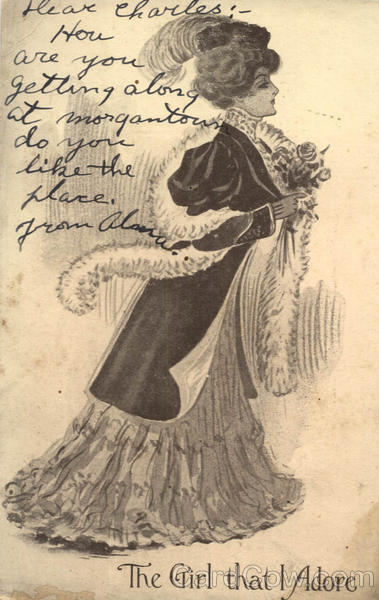 Dear Charles:-
How
are you
getting along
at morgantown
do you
like the
place.
from Alma.
The Girl that I Adore